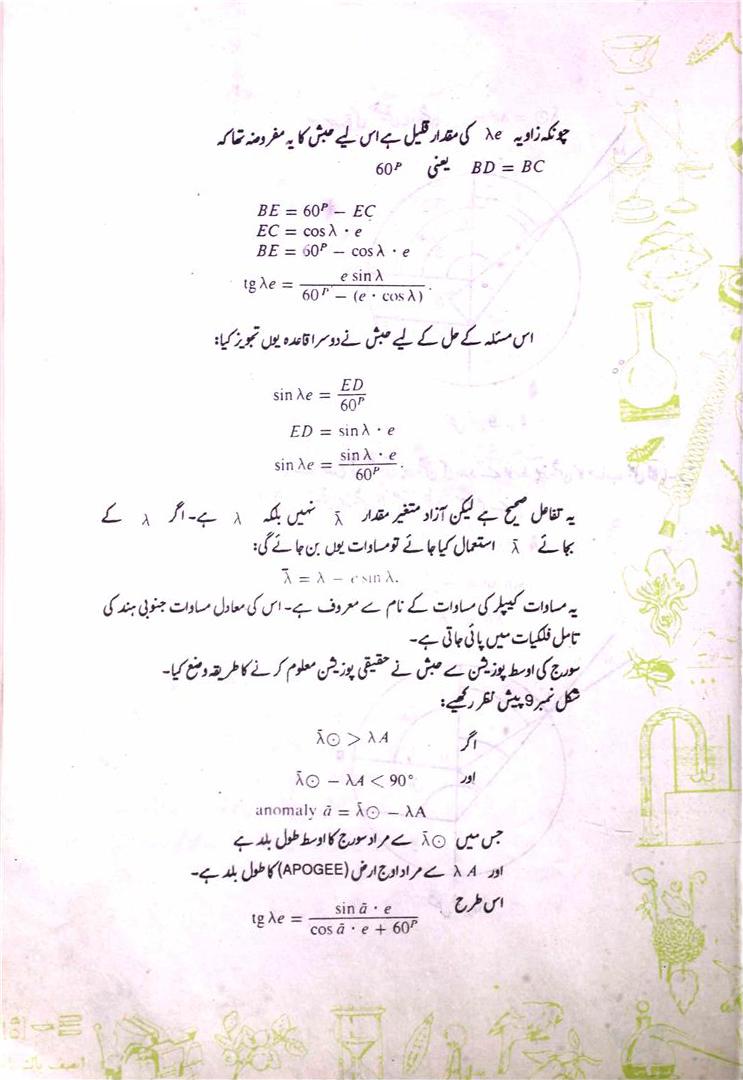 چونکہ زاویہ λe کی مقدار قلیل ہے اس لیے حبش کا یہ مفروضہ تھا کہ
BD = BC یعنی 60ᴾ
BE = 60ᴾ − EC
EC = cos λ · e
BE = 60ᴾ − cos λ · e
tg λe = e sin λ / 60ᴾ − (e · cos λ) .
اس مسئلہ کے حل کے لیے حبش نے دوسرا قاعدہ یوں تجویز کیا:
sin λe = ED / 60ᴾ
ED = sin λ · e
sin λe = sin λ · e / 60ᴾ .
یہ تفاعل صحیح ہے لیکن آزاد متغیر مقدار λ̄ نہیں بلکہ λ ہے۔ اگر λ کے
بجائے λ̄ استعمال کیا جائے تو مساوات یوں بن جائے گی:
λ̄ = λ − e sin λ.
یہ مساوات کیپلر کی مساوات کے نام سے معروف ہے۔ اس کی معادل مساوات جنوبی ہند کی
تامل فلکیات میں پائی جاتی ہے۔
سورج کی اوسط پوزیشن سے حبش نے حقیقی پوزیشن معلوم کرنے کا طریقہ وضع کیا۔
شکل نمبر 9 پیش نظر رکھیے:
اگر λ̄☉ > λA
اور λ̄☉ − λA < 90°
anomaly ā = λ̄☉ − λA
جس میں λ̄☉ سے مراد سورج کا اوسط طول بلد ہے
اور λA سے مراد اوج ارض (APOGEE) کا طول بلد ہے۔
اس طرح
tg λe = sin ā · e / cos ā · e + 60ᴾ